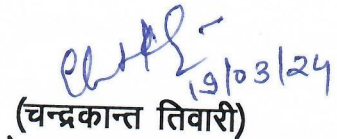 19/03/24
(चन्द्रकान्त तिवारी)